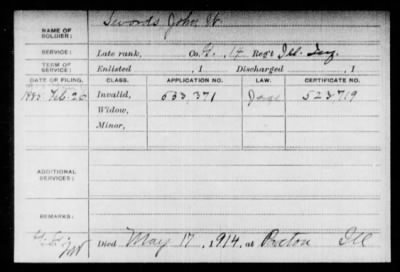 NAME OF SOLDIER: Swords John W.
SERVICE: Late rank, Co. G, 14 Reg't Ill. Inf.
TERM OF SERVICE: Enlisted , 1 Discharged , 1
DATE OF FILING. CLASS. APPLICATION NO. LAW. CERTIFICATE NO.
Feb. 20 Invalid, 633,371 523719
Widow,
Minor,
ADDITIONAL SERVICES:
REMARKS:
Died May 17, 1914, at Ill